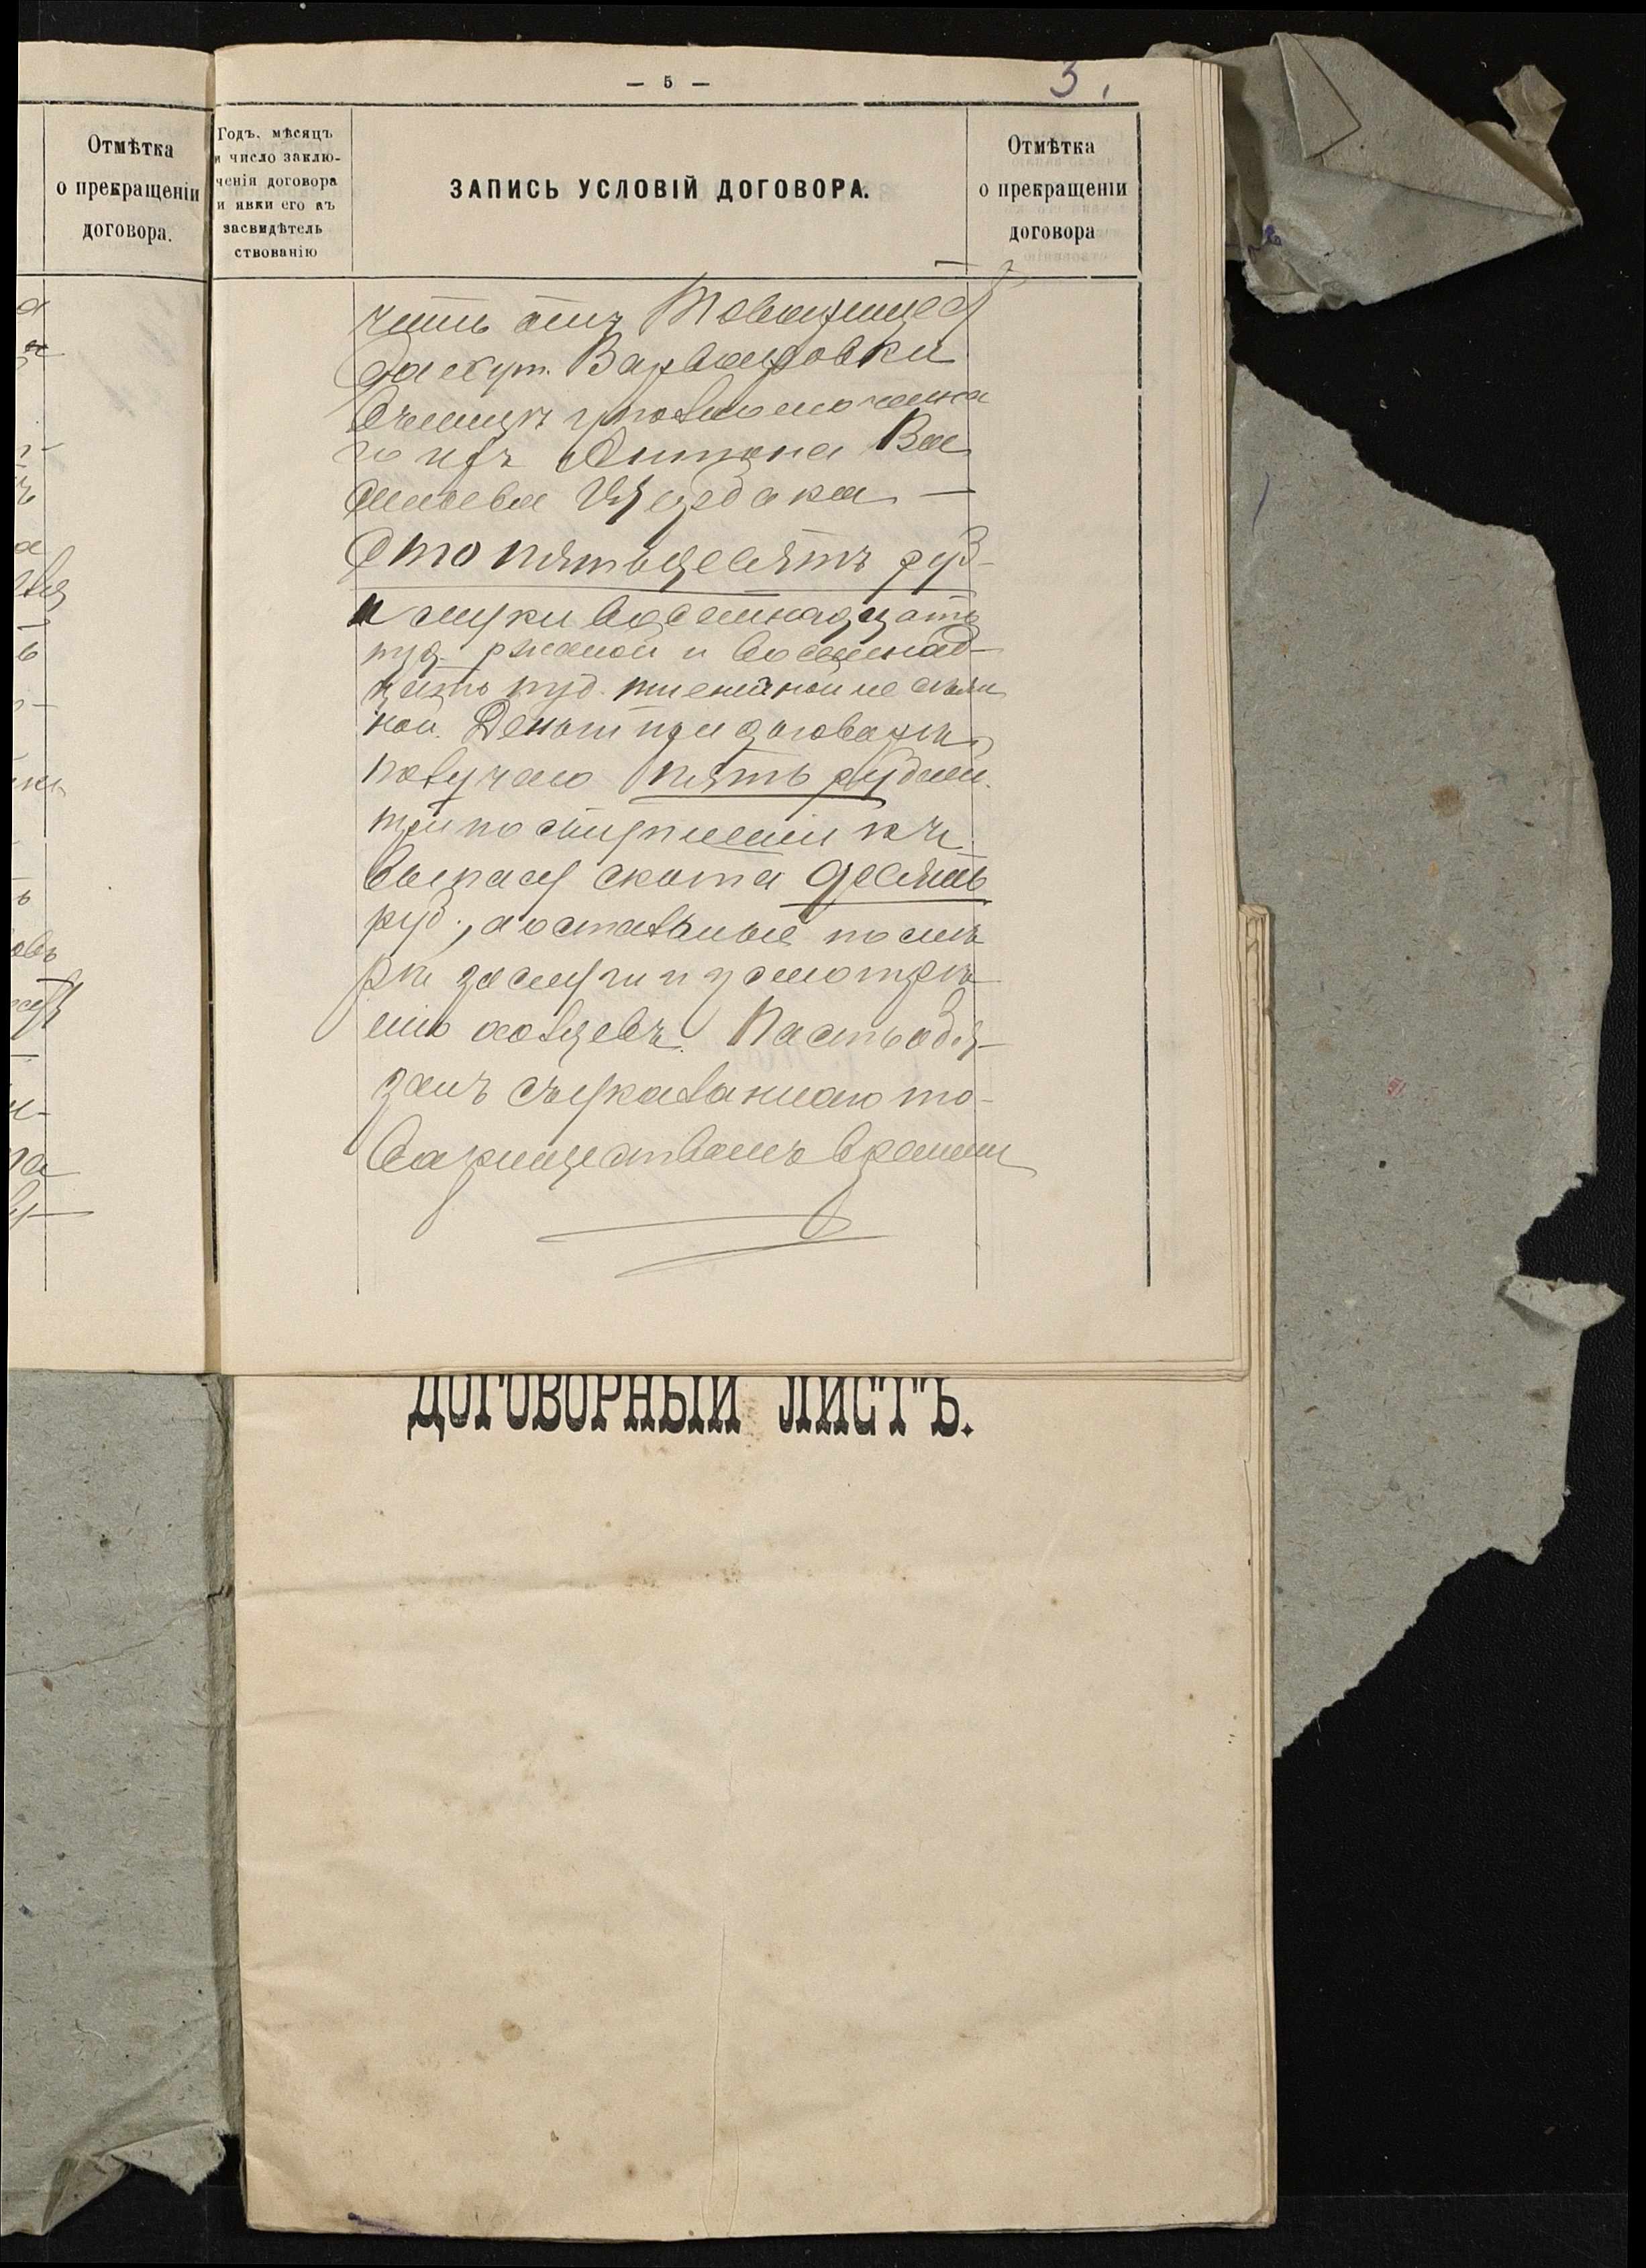 — 5 —
3.
Отмѣтка
о прекращеніи
договора.
Годъ, мѣсяцъ
и число заклю-
ченія договора
и явки его къ
засвидѣтель
ствованію
ЗАПИСЬ УСЛОВІЙ ДОГОВОРА.
Отмѣтка
о прекращеніи
договора
чить отъ Товарищест
ва хут. Варваровки
чрезъ уполномоченна
го ихъ Антона Ва
сильева
Сто пятьдесятъ руб-
и муки восемнадцать
пуд. ржаной и восемнад-
цать пуд. пшеничной не сѣян
ной. Деньги при договорѣ
получаю пять рублей
при поступленіи къ
выпасу скота десять
руб., а остальные по мѣ
рѣ заслуги и усмотрѣ
нію хозяевъ. Пасть обя-
занъ съ указаннаго то-
вариществомъ времени
ДОГОВОРНЫЙ ЛИСТЪ.